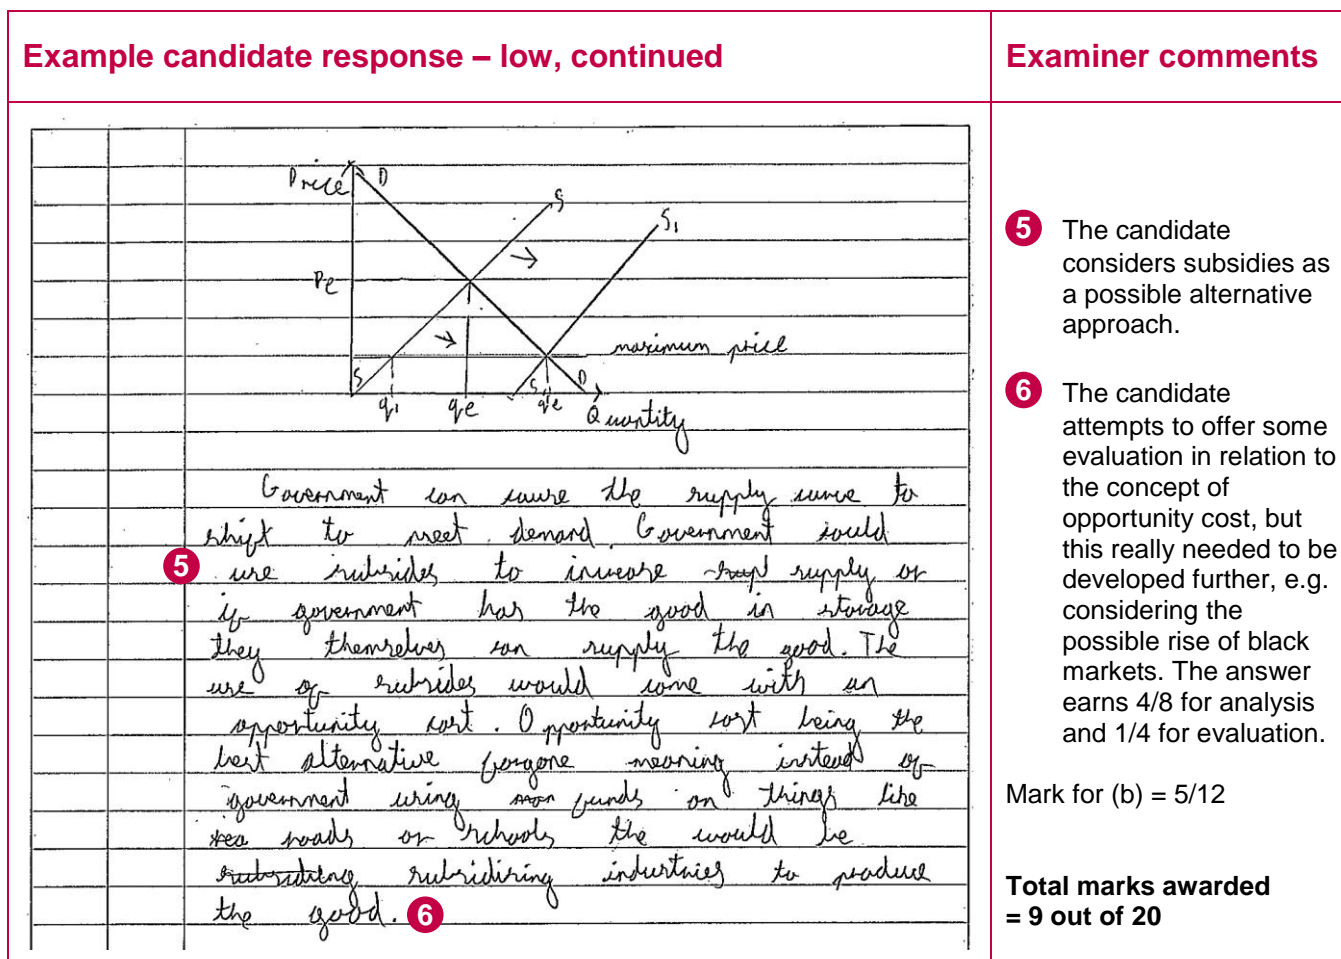 Example candidate response – low, continued
Examiner comments
Price
D
S
S₁
Pe
maximum price
S
S₁
D
q₁
qe
q'e
Quantity
Government can cause the supply curve to
shift to meet demand. Government could
5 use subsides to increase supply or
if government has the good in storage
they themselves can supply the good. The
use of subsides would come with an
opportunity cost. Opportunity cost being the
best alternative forgone meaning instead of
government using funds on things like
roads or schools the would be
subsidising industries to produce
the good. 6
5 The candidate
considers subsidies as
a possible alternative
approach.
6 The candidate
attempts to offer some
evaluation in relation to
the concept of
opportunity cost, but
this really needed to be
developed further, e.g.
considering the
possible rise of black
markets. The answer
earns 4/8 for analysis
and 1/4 for evaluation.
Mark for (b) = 5/12
Total marks awarded
= 9 out of 20